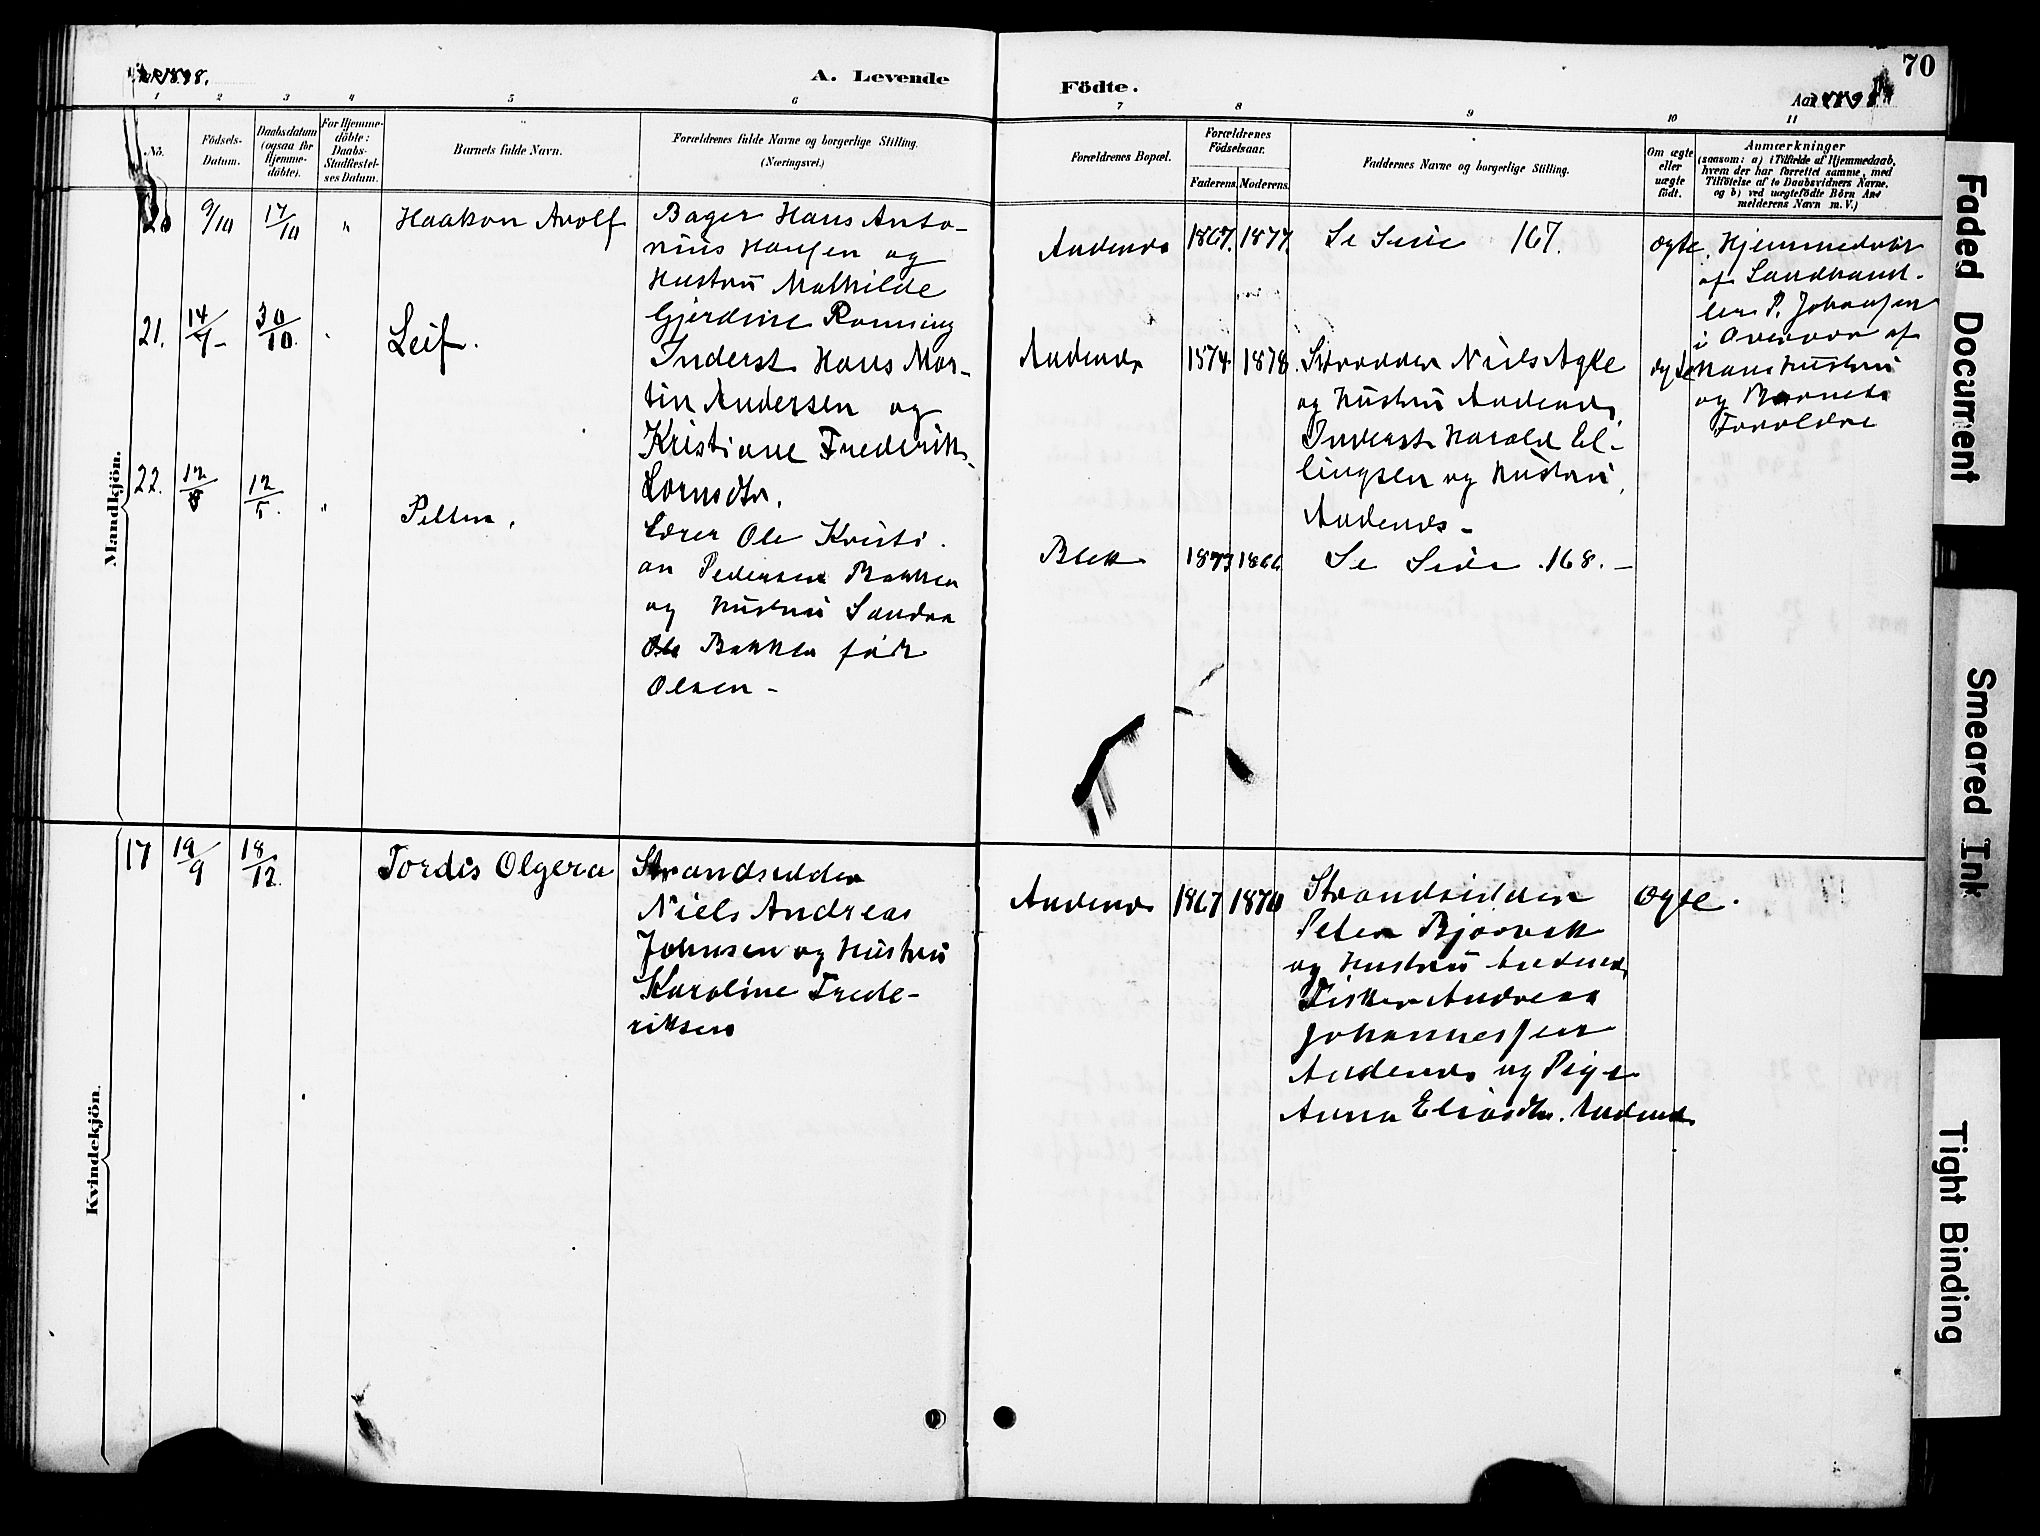 1898.
A. Levende
Födte.
Aar 1898
70
1 2 3 4 5 6 7 8 9 10 11
No.
Födsels-
Datum.
Daabsdatum
(ogsaa for
Hjemme-
döbte).
For Hjemme-
döbte:
Daabs-
Stadfæstel-
ses Datum.
Barnets fulde Navn.
Forældrenes fulde Navne og borgerlige Stilling.
(Næringsvei.)
Forældrenes Bopæl.
Forældrenes
Födselsaar.
Faderens. Moderens.
Faddernes Navne og borgerlige Stilling.
Om ægte
eller
uægte
födt.
Anmærkninger
(saasom: a) i Tilfælde af Hjemmedaab,
hvem der har forrettet samme, med
Tilföielse af to Daabsvidners Navne,
og b) ved uægtefödte Börn An-
melderens Navn m. V.)
Mandkjön.
20 9/10 17/10 " Haakon Arolf
Bager Hans Anto-
nius Hansen og
Hustru Mathilde
Gjerdine Rønning
Andenes 1867. 1877. Se Side 167. ægte.
Hjemmedøbt
af Landhand-
ler P. Johansen
i Overvær af
hans Hustru
og Barnets
Forældre
21. 14/7 30/10 Leif.
Inderst Hans Mar-
tin Andersen og
Kristiane Frederik-
Lornsdtr.
Andenes 1874 1878 Niels Agle ægte
og Hustru Andenes,
Inderst Harald El-
lingsen og Hustru,
Andenes -
22. 12/5 12/5 " Petter.
Lærer Ole Kristi
an Pedersen Bakken
og Hustru Sandra
Bakken født
Olsen -
Bleik 1873 1866 Se Side 168. -
Kvindekjön.
17 19/9 18/12 Tordis Olgera
Strandsidder
Niels Andreas
Johnsen og Hustru
Karoline Frede-
riksen
Andenes 1867 1870 Strandsidder ægte.
Peter Bjørvik
og Hustru Andenes
Fisker Andreas
Johannessen
Andenes og Pige
Anna Eliasdtr. Andenes
Faded Document
Smeared Ink
Tight Binding